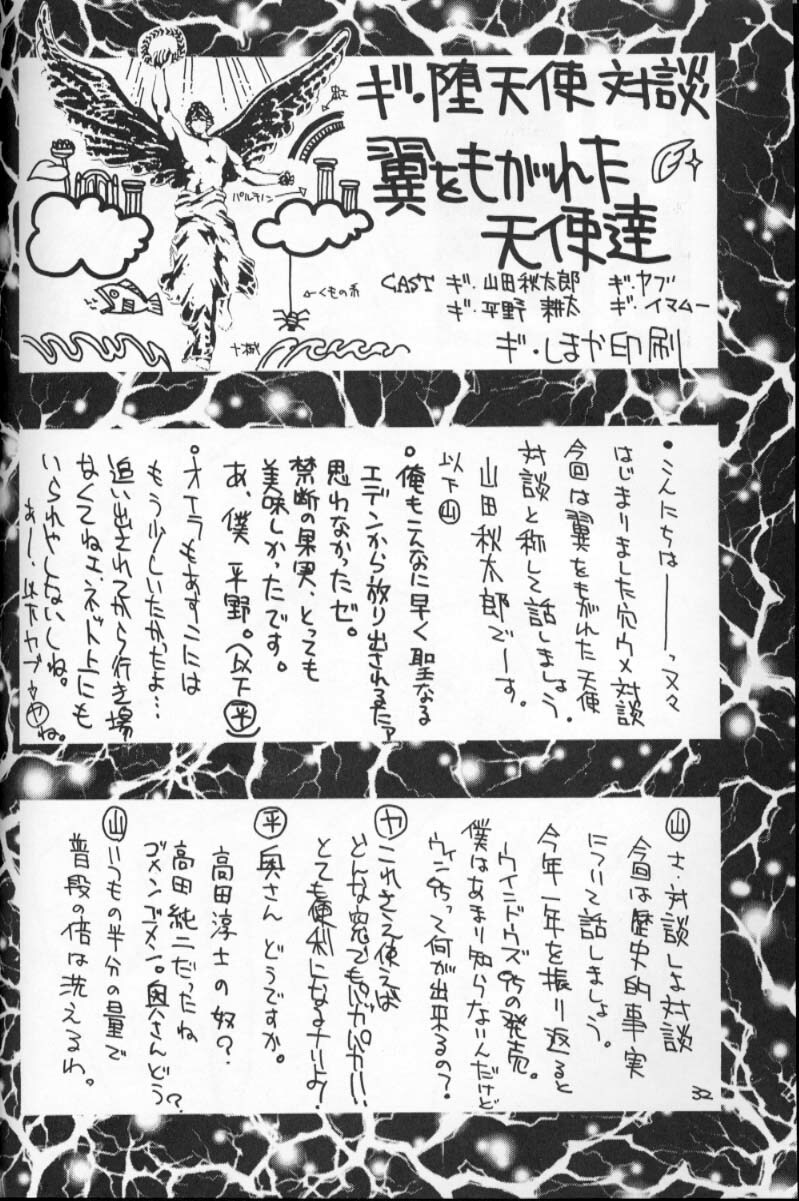 ギ・堕天使対談
翼をもがれた
天使達
CAST ギ・山田秋太郎 ギ・ヤブ
ギ・平野耕太 ギ・イマムー
ギ・しまや印刷
虹
パルテノン
←くもの糸
・こんにちはーーーっ又々
はじまりました穴ウメ対談
今回は翼をもがれた天使
対談と称して話しましょう。
山田秋太郎でーす。
以下山
・俺もこんなに早く聖なる
エデンから放り出されるたァ
思わなかったゼ。
禁断の果実、とっても
美味しかったです。
あ、僕平野。(以下平)
・オイラもあすこには
もう少しいたかったよ…
追い出されてから行き場
なくてねェ、ネドト上にも
いられやしないしね。
あー、以下ヤブ→ヤね。
山 さ・対談しよ対談
今回は歴史的事実
について話しましょう。
今年一年を振り返ると
ウィンドウズ95の発売。
僕はあまり知らないんだけど
ウィン95って何が出来るの?
ヤ これさえ使えば
どんな窓でもパカパカ!!
とても便利になるナリよ!
平 奥さんどうですか。
高田淳士の奴?
高田純二だったね
ゴメンゴメン。奥さんどう?
山 いつもの半分の量で
普段の倍は洗えるわ。
32